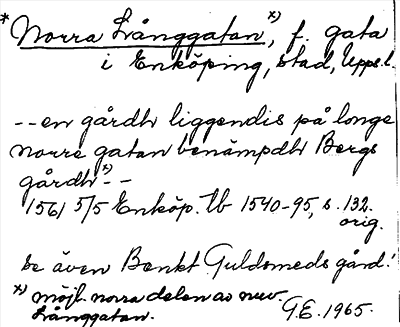 * Norra Långgatan, *) f. gata
i Enköping, stad, Upps.l.
-- en gårdh liggendis på longe
norre gatan benämpdh Bergs
gårdh *) - -
1561 5/5 Enköp. tb 1540-95, s. 132.
orig.
se även Benkt Guldsmeds gård!
*) möjl. norra delen av nuv.
Långgatan.
G.E. 1965.